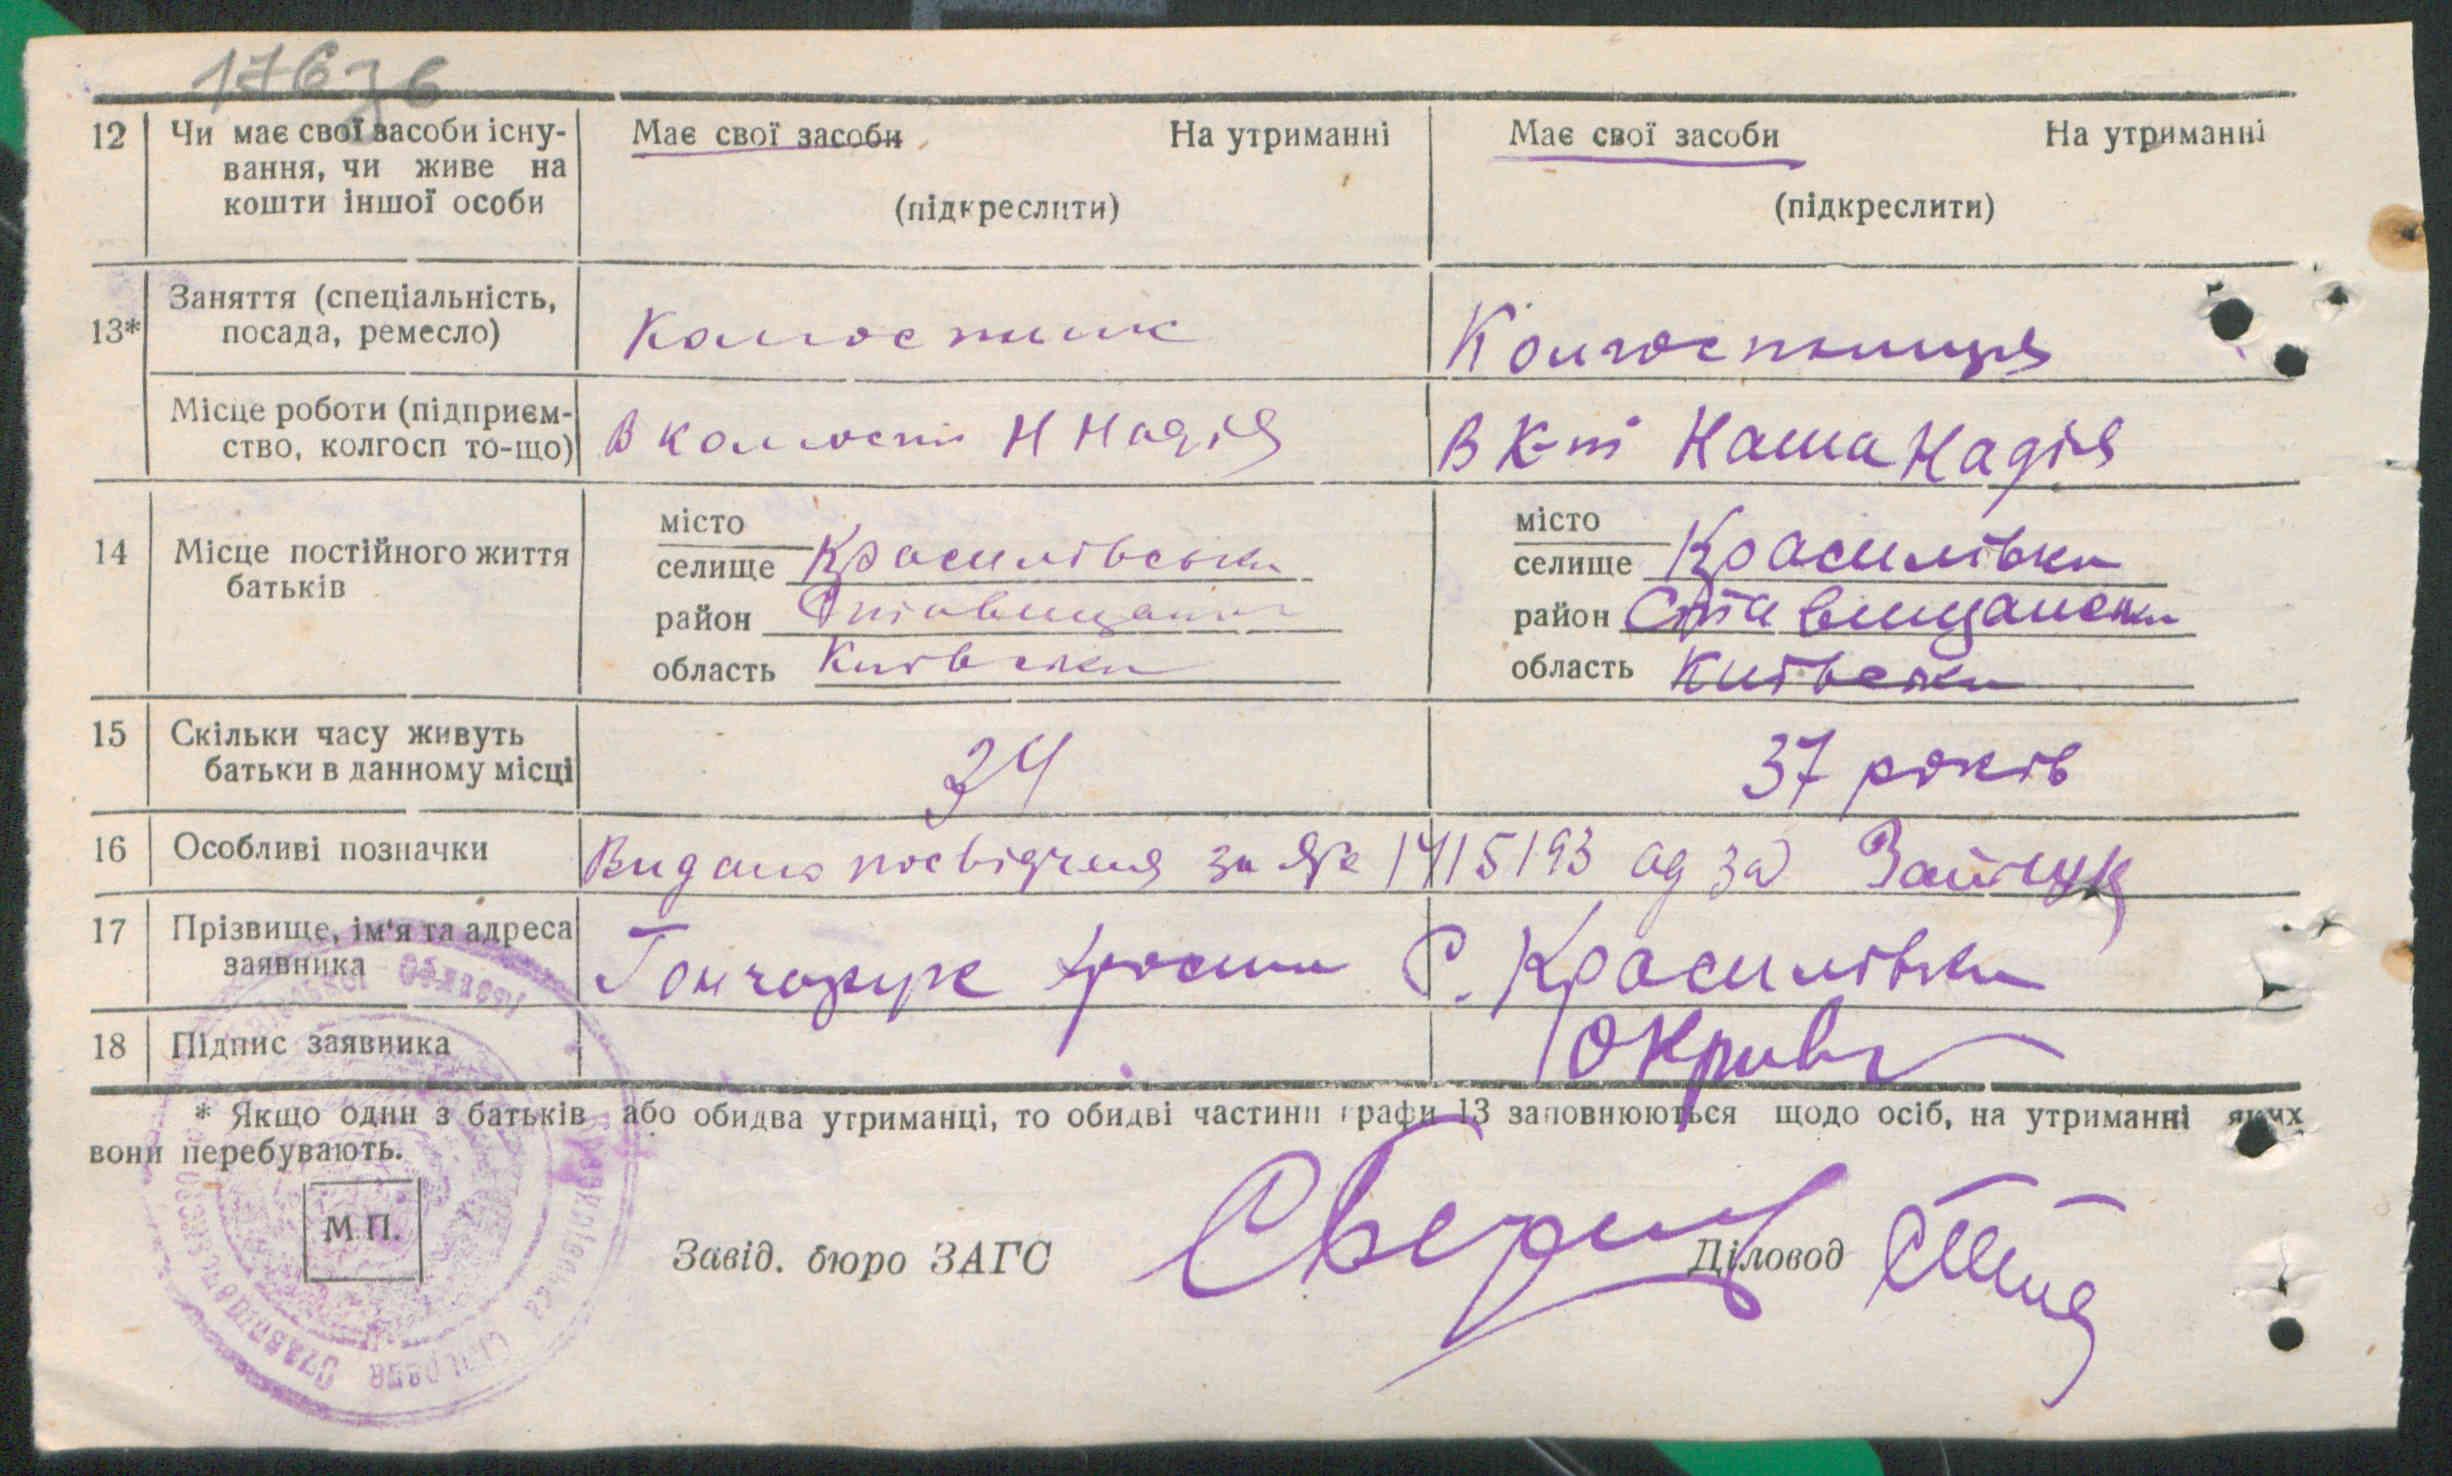 17676
12 Чи має свої засоби існу- Має свої засоби На утриманні Має свої засоби На утриманні
вання, чи живе на
кошти іншої особи (підкреслити) (підкреслити)
Заняття (спеціальність,
13* посада, ремесло) Колгоспник Колгоспниця
Місце роботи (підприєм-
ство, колгосп то-що) В колгоспі Н Надія В К-пі Наша Надія
місто місто
14 Місце постійного життя селище Красилівська селище Красилівка
батьків район Ставищанськ район Ставищанська
область Київська область Київська
15 Скільки часу живуть
батьки в данному місці 34 37 років
16 Особливі позначки Видано посвідченя за № 1715193
17 Прізвище, ім‘я та адреса
заявника Гончарук С. Красилівка
18 Підпис заявника
* Якщо один з батьків або обидва утриманці, то обидві частини графи 13 заповнюються щодо осіб, на утриманні яких
вони перебувають.
М П.
Завід. бюро ЗАГС Діловод